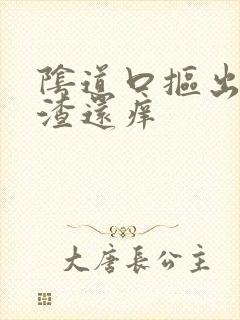 陰道口摳出
渣還痒
大唐長公主